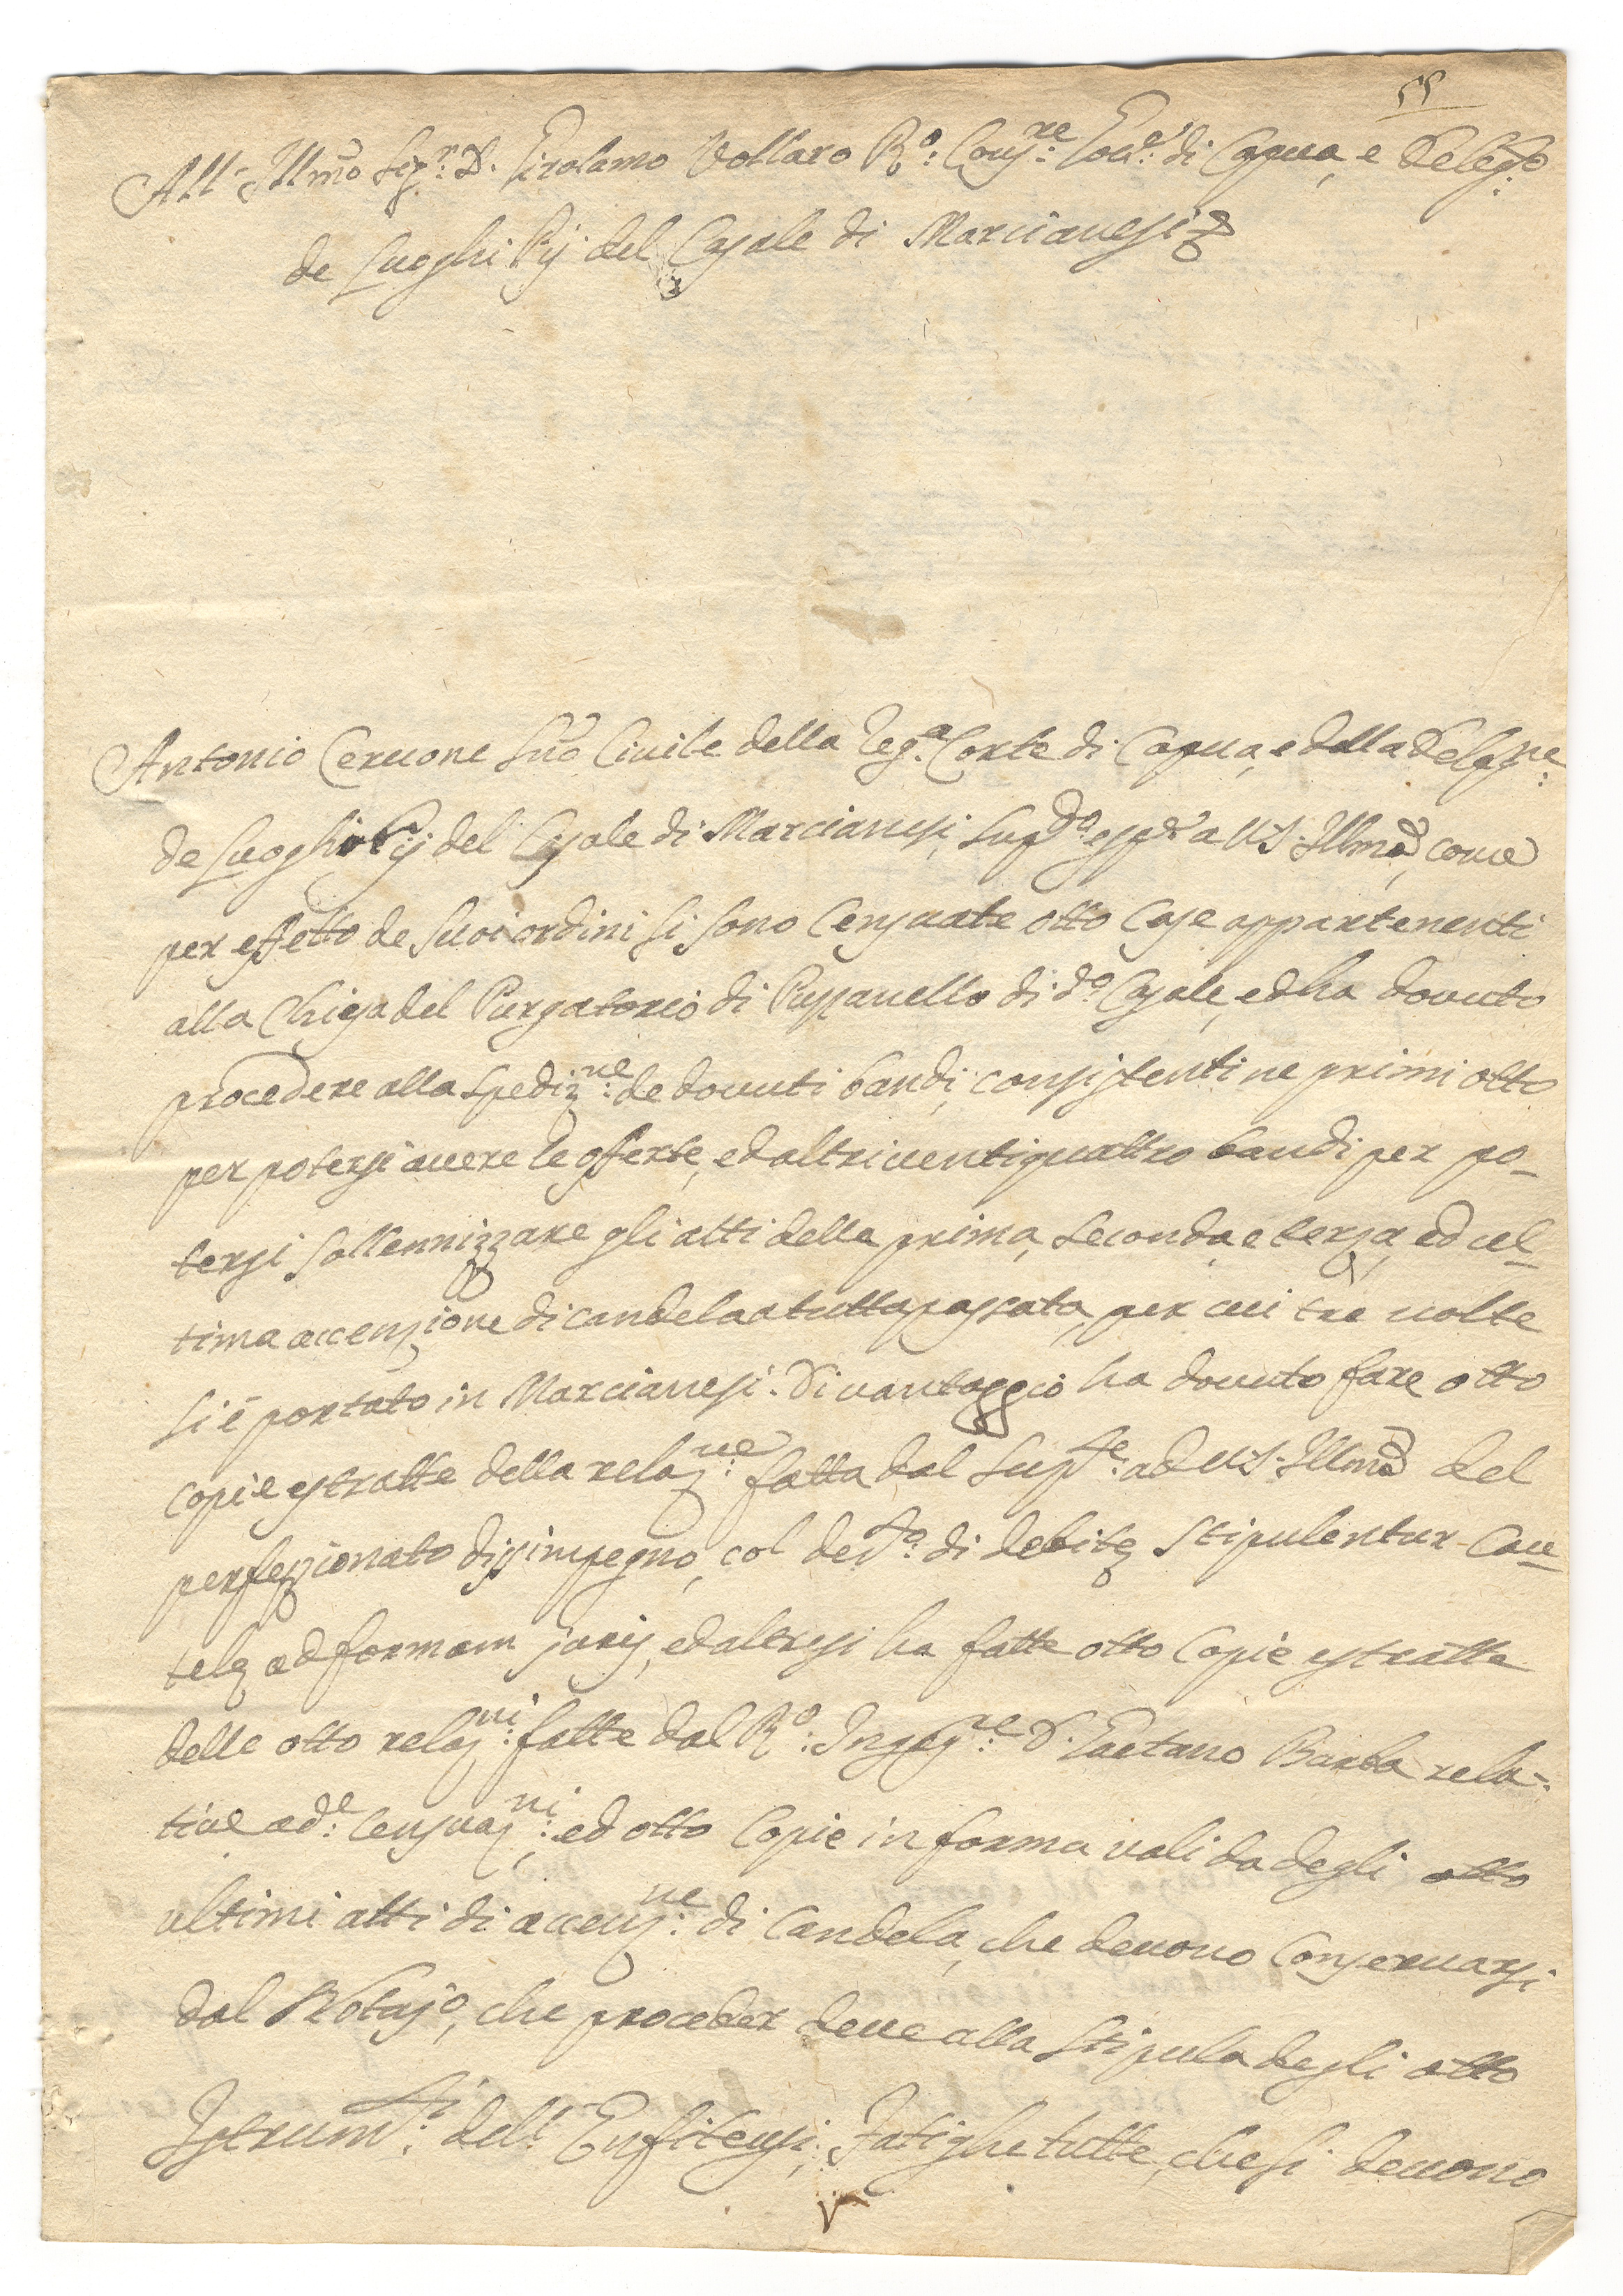 55
All' Ill̃mo Sig.r D. Girolamo Vollaro R.o Cons.re Gov.e di Capua, e Deleg.o
de Luoghi Pij del Casale di Marcianesi
Antonio Cervone Sũo Civile della Reg.a Corte di Capua, e della Delag.ne
de Luoghi Pij del Casale di Marcianesi, supp.do espe a V.S. Ill̃ma, come
per effetto de suoi ordini si sono censuate otto case appartenenti
alla Chiesa del Purgatorio di Puzzaniello di d.o Casale, ed ha dovuto
procedere alla spediz.ne de dovuti bandi, consistentino primi otto
per potersi avere le offerte, ed altri ventiquattro bandi per po-
tersi sollennizzare gli atti della prima, seconda, e terza, ed ul-
tima accenzione di candela a tutta passata, per cui trè volte
si è portato in Marcianesi. Di vantaggio ha dovuto fare otto
copie estratte della relaz.ne fatta dal sup.te ad V.S. Ill̃ma del
perfezzionato dissimpegno, col dec.to di debitę stipulentur cau-
telę ad formam juris, ed altresi ha fatte otto copie estratte
delle otto relaz.ni fatte dal R.o Ingeg.re D. Gaetano Barba rela-
tive a d.e censuaz.ni, ed otto copie in forma valida degli otto
ultimi atti di accenz.ne di candela, che devono conservarsi
dal Notajo, che proceder deve alla stipula degli otto
Istrum.ti dell' Enfiteusi; Fatighe tutte, che si devono